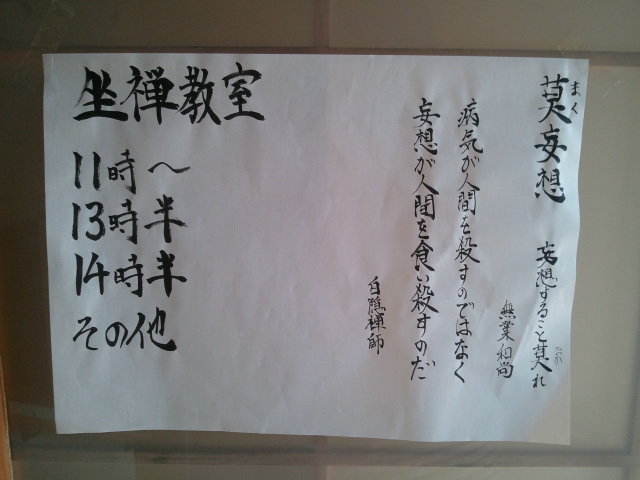 莫妄想
まく
妄想すること莫れ
なか
無業和尚
病気が人間を殺すのではなく
妄想が人間を食い殺すのだ
白隠禅師
坐禅教室
11時〜
13時半
14時半
その他